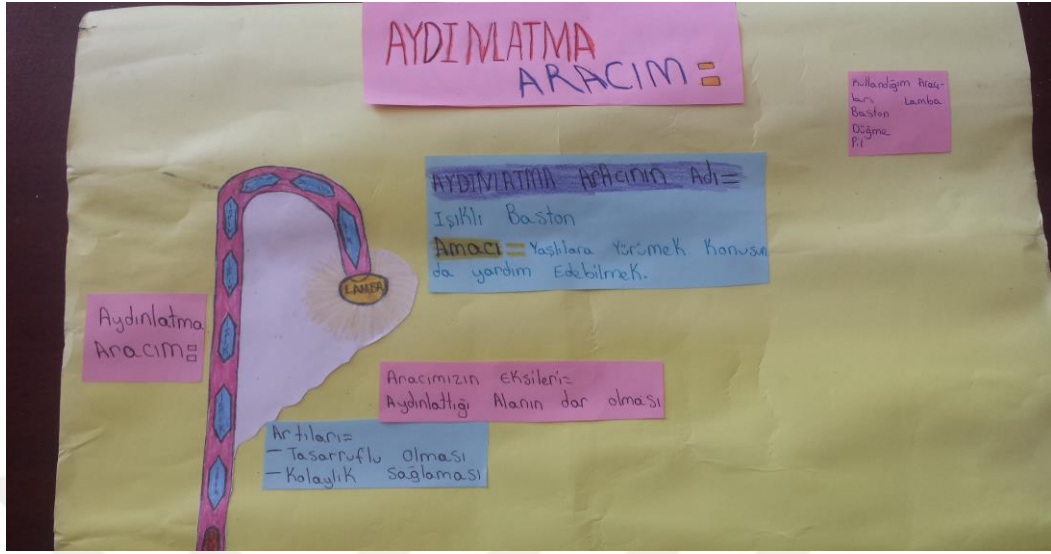 AYDINLATMA
ARACIM =
Kullandığım Araç-
ları Lamba
Baston
Düğme
Pil
AYDINLATMA ARACININ Adı=
Işıklı Baston
Amacı = Yaşlılara Yürümek Konusun
da yardım Edebilmek.
LAMBA
Aydınlatma
Aracım=
Aracımızın Eksileri=
Aydınlattığı Alanın dar olması
Artıları=
- Tasarruflu olması
- Kolaylık sağlaması